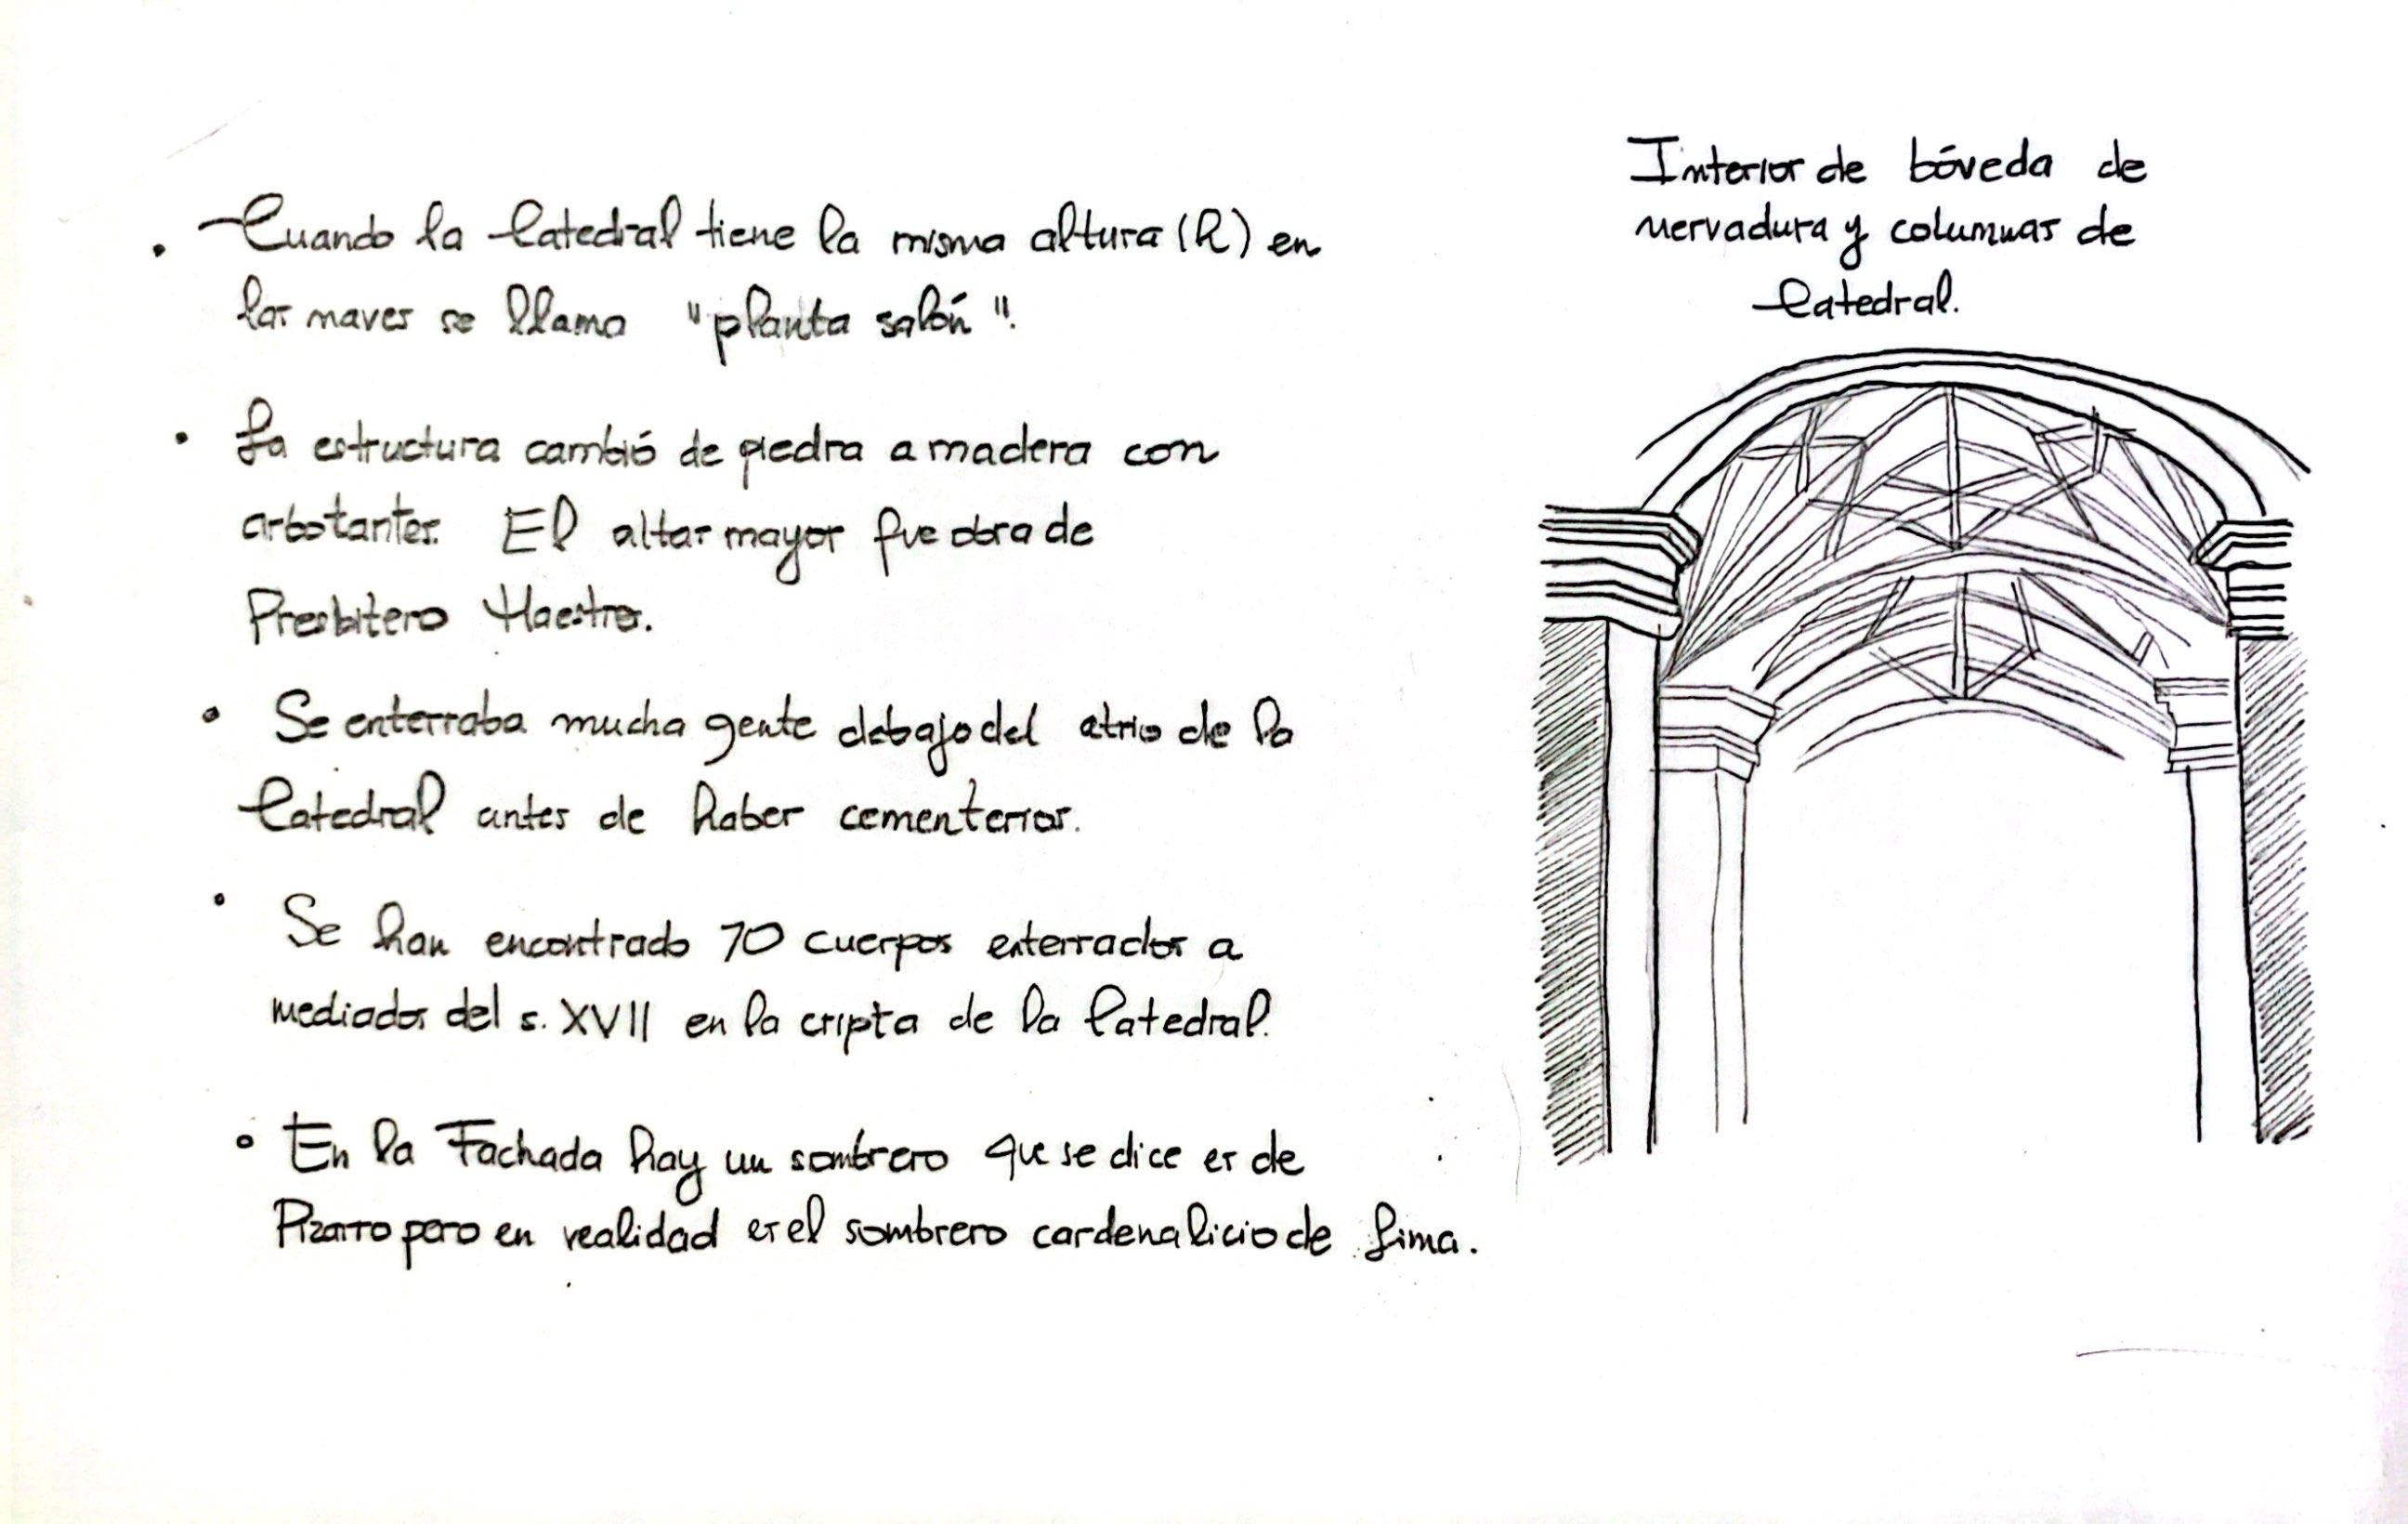 . Cuando la Catedral tiene la misma altura (h) en
las naves se llama "planta salón".
• La estructura cambió de piedra a madera con
arbotantes. El altar mayor fue obra de
Presbitero Maestro.
• Se enterraba mucha gente debajo del atrio de la
Catedral antes de haber cementerios.
• Se han encontrado 70 cuerpos enterrados a
mediados del s. XVII en la cripta de la Catedral.
• En la Fachada hay un sombrero que se dice es de
Pizarro pero en realidad es el sombrero cardenalicio de Lima.
Interior de bóveda de
nervadura y columnas de
Catedral.